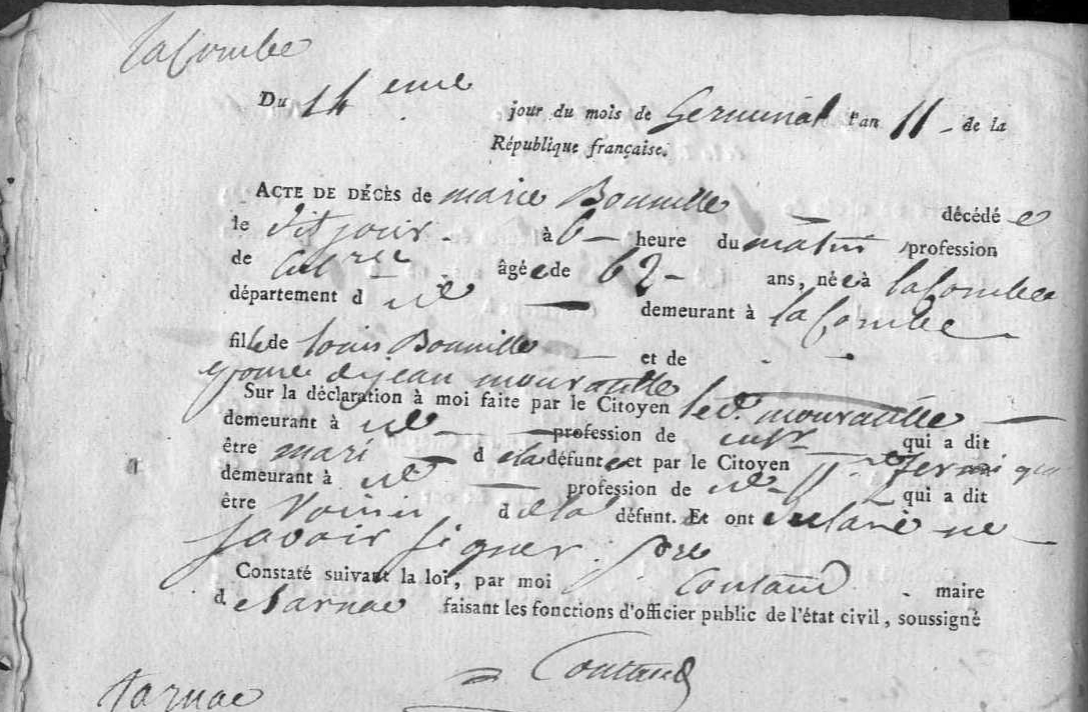 la Combe
Du 14 eme jour du mois de Germinal l'an 11 - de la
République française.
ACTE DE DÉCÈS de marie Bouuille décédé e
le dit jour - à 6 - heure du matin profession
de âgé e de 62 - ans, né e à la Combe
département d demeurant à la Combe
fille de louis Bouuille et de
epouse de jean mourataille
Sur la déclaration à moi faite par le Citoyen led. mourataille
demeurant à profession de cultr qui a dit
être mari d e la défunte et par le Citoyen
demeurant à profession de qui a dit
être Voisin d e la défunt. Et ont declaré ne
savoir signer.
Constaté suivant la loi, par moi pre Coutaud - maire
d e tarnac faisant les fonctions d'officier public de l'état civil, soussigné
Coutaud
tarnac